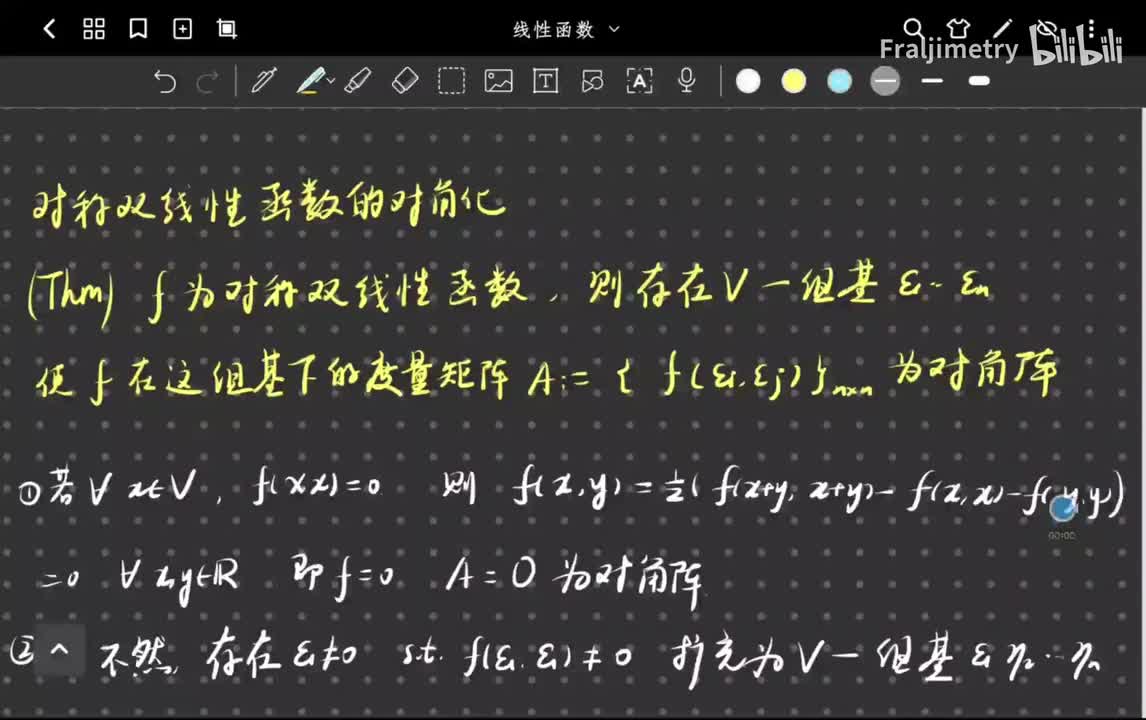 线性函数
Fraljimetry bilibili
对称双线性函数的对角化
(Thm) f 为对称双线性函数, 则存在 V 一组基 ε₁…εₙ
使 f 在这组基下的度量矩阵 A := { f(εᵢ, εⱼ) }ₙₓₙ 为对角阵
① 若 ∀ x∈V, f(x,x)=0 则 f(x,y) = ½( f(x+y, x+y) − f(x,x) − f(y,y) )
00:00
=0 ∀ x,y∈ℝ 即 f=0 A=0 为对角阵
② 不然, 存在 ε₁≠0 s.t. f(ε₁, ε₁)≠0 扩充为 V 一组基 ε₁ η₂…ηₙ